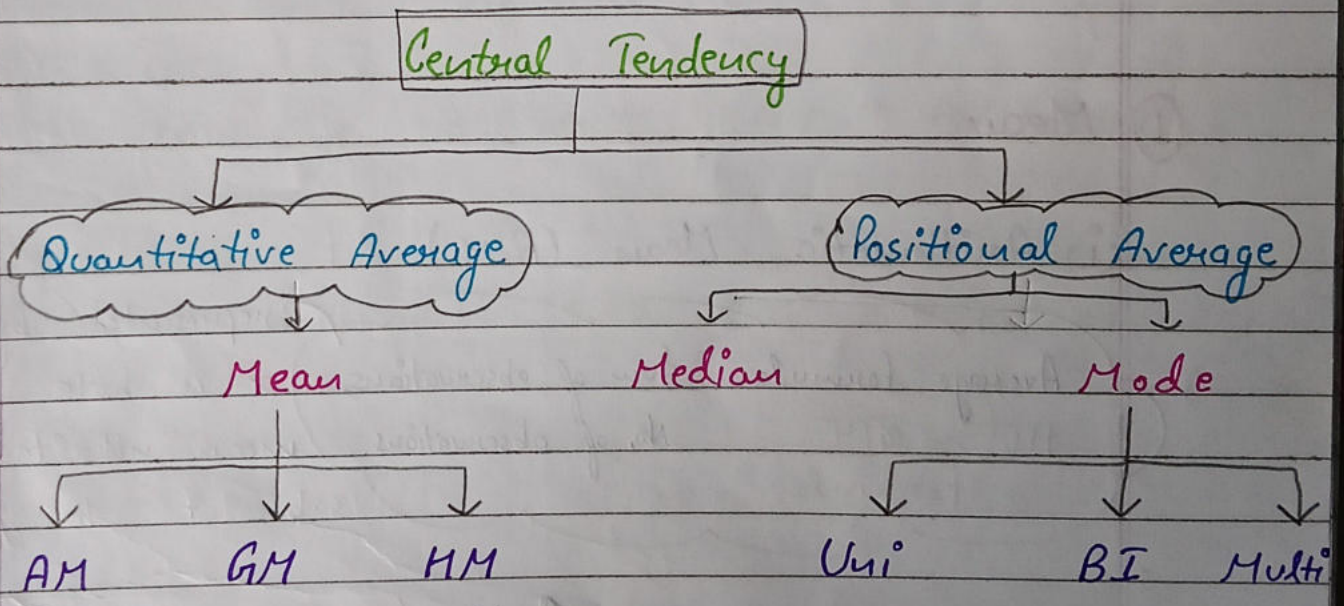 Central Tendency
Quantitative Average Positional Average
Mean Median Mode
AM GM HM Uni BI Multi